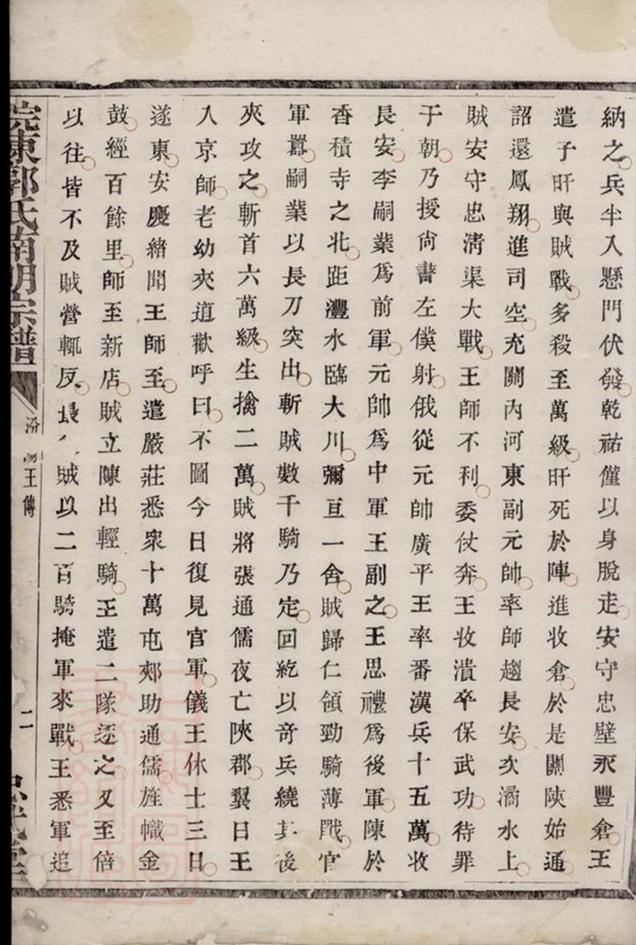 納之兵半入懸門伏發乾祐僅以身脫走安守忠壁永豐倉王
遣子旰與賊戰多殺至萬級旰死於陣進收倉於是關陝始通
詔還鳳翔進司空充關內河東副元帥率師趨長安次潏水上
賊安守忠淸渠大戰王師不利委仗奔王收潰卒保武功待罪
于朝乃授尙書左僕射俄從元帥廣平王率番漢兵十五萬收
長安李嗣業爲前軍元帥爲中軍王副之王思禮爲後軍陳於
香積寺之北距灃水臨大川彌亘一舍賊歸仁領勁騎薄戰官
軍囂嗣業以長刀突出斬賊數千騎乃定回紇以奇兵繞其後
夾攻之斬首六萬級生擒二萬賊將張通儒夜亡陝郡翼日王
入京師老幼夾道歡呼曰不圖今日復見官軍儀王休士三日
遂東安慶緒聞王師至遣嚴莊悉衆十萬屯郟助通儒旌幟金
鼓經百餘里師至新店賊立陳出輕騎王遣二隊逐之又至倍
以往皆不及賊營輒反最 賊以二百騎掩軍來戰王悉軍追
院東郭氏南湖宗譜 汾 王傳 二